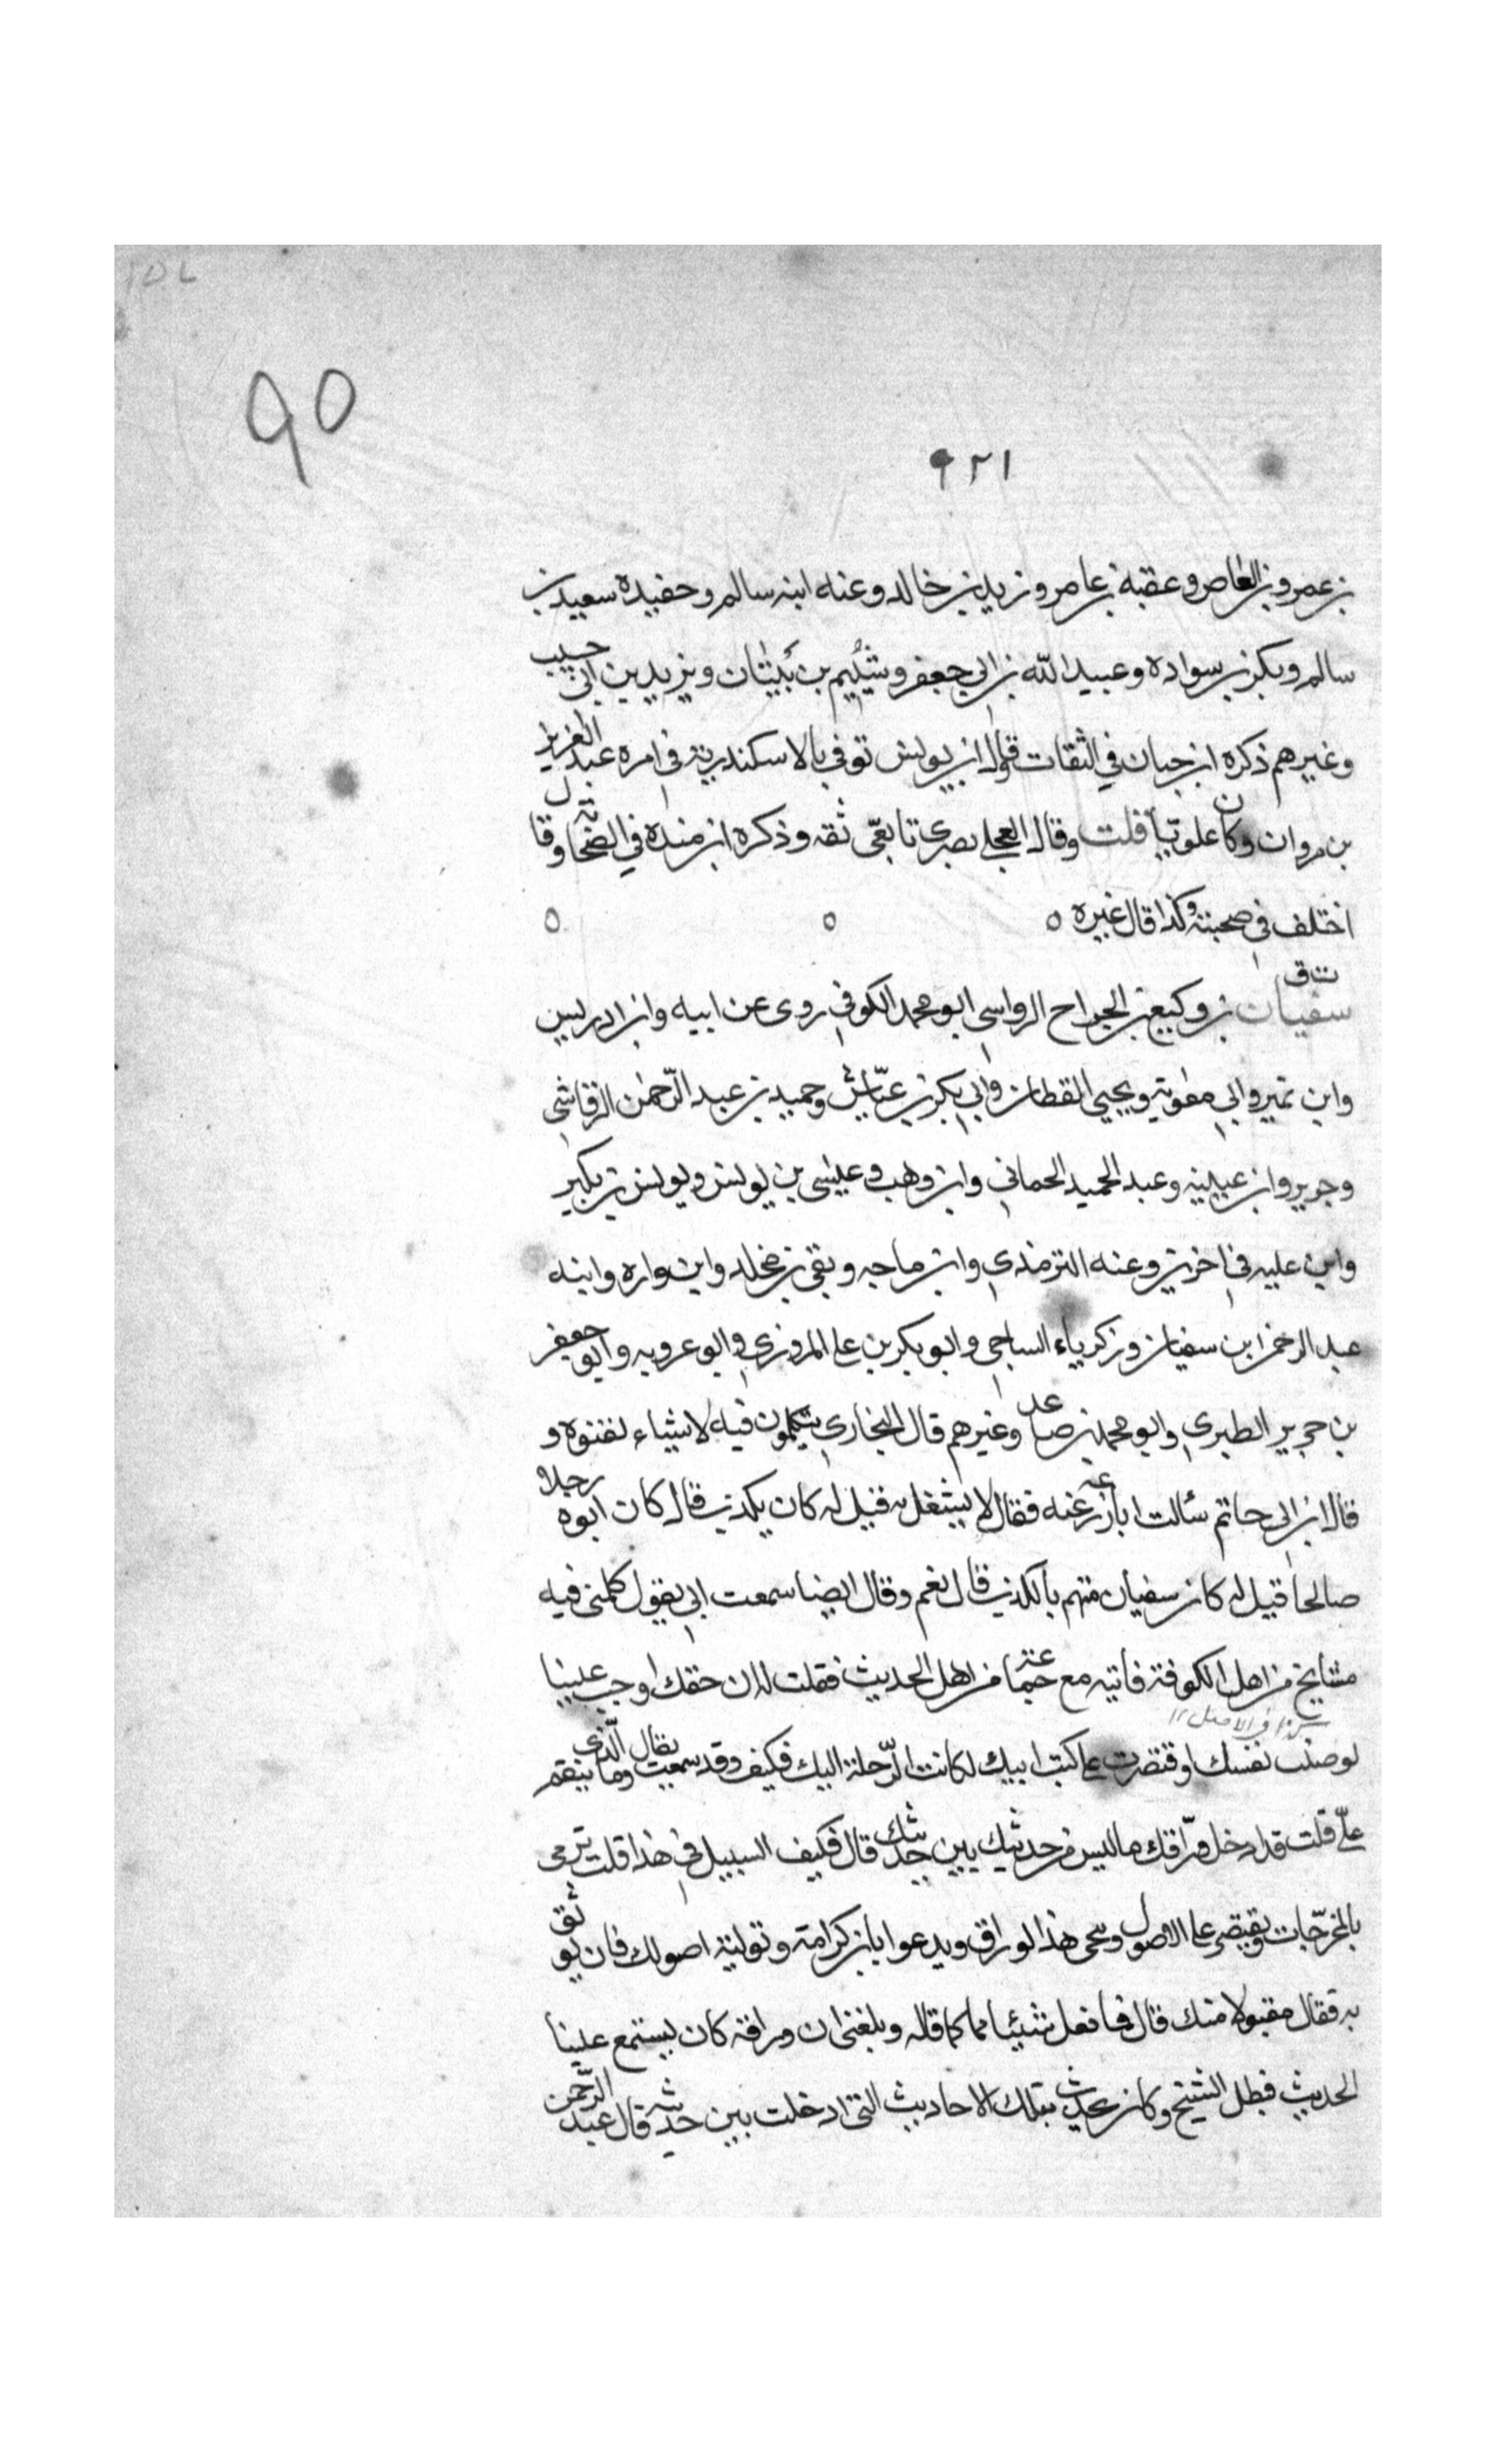 ٩٥
٩٢١
بن عمرو بن العاص وعقبة بن عامر وزيد بن خالد وعنه ابنه سالم وحفيده سعيد بن
سالم وبكر بن سواده وعبيد الله بن ابي جعفر وشييم بن بيتان ويزيد بن ابي حبيب
وغيرهم ذكره ابن حبان في الثقات قوله ابن يونس توفي بالاسكندرية في امره عبد العزيز
بن مروان وكان علويا قلت وقال العجلي بصري تابعي ثقه وذكره ابن منده في الصحابة وقال
اختلف في صحبته وكذا قال غيره ٥ ٥ ٥
ت ق
سفيان بن وكيع بن الجراح الرواسي ابو محمد الكوفي روى عن ابيه وابن ادريس
وابن نمير وابي معوية ويحيي القطان وابي بكر بن عياش وحميد بن عبد الرحمن الرقاشي
وجرير وابن عيينه وعبد الحميد الحماني وابن وهب وعيسى بن يونس ويونس بن بكير
وابن عليه في اخرين وعنه الترمذي وابن ماجه وبقي بن مخلد وابن واره وابنه
عبد الرحمن ابن سفيان وزكرياء الساجي وابو بكر بن علي المروزي وابو عروبه وابو جعفر
بن جرير الطبري وابو محمد بن صاعد وغيرهم قال البخاري يتكلمون فيه لاشياء لقنوه و
قال ابن ابي حاتم سألت ابا زرعة عنه فقال لا يشتغل به قيل له كان يكذب قال كان ابوه رجلا
صالحا قيل له كان سفيان متهم بالكذب قال نعم وقال ايضا سمعت ابي يقول كلمني فيه
مشايخ من اهل الكوفة فاتيته مع جماعة من اهل الحديث فقلت له ان حقك اوجب علينا
كذا في الاصل ١٢
لو صنت نفسك اوقتصرت على كتب ابيك لكانت الرحلة اليك فكيف وقد سمعت وما ينقم يقال الذي
علي قلت قد ادخل ورّاقك ما ليس من حديثك بين حديثك قال فكيف السبيل في هذا قلت ترمى
بالمخرجات وتقتصر على الاصول وتنحى هذا الوراق ويدعوا بابن كرامة وتوليه اصولك فان يوثق
به فقال مقبولا منك قال فما فعل شيئا مما كما قاله وبلغني ان وراقه كان يستمع علينا
الحديث فبطل الشيخ وكان يحدث بتلك الاحاديث التي ادخلت بين حديثه قال عبد الرحمن